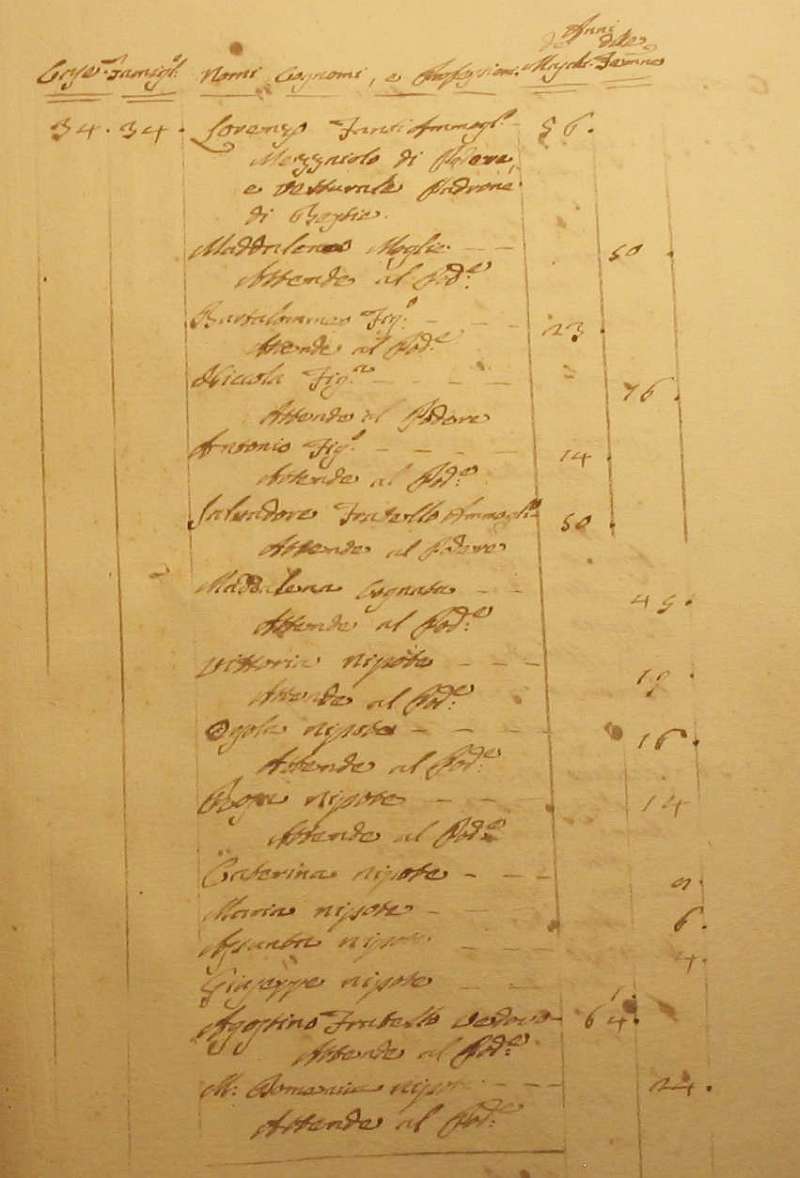 Anni
de delle
Case. Famigl. Nomi Cognomi, e Professioni. Maschi. Femine
34. 34. Lorenzo Fanti Ammogl. 56.
Mezzaiolo di Podere,
e Vetturale Padrone
di Bestie.
Maddalena Moglie 50.
Attende al Pod.e
Bartolommeo Fig.o 23.
Attende al Pod.e
Niccola Fig.a 16.
Attende al Podere
Antonio Fig.o 14.
Attende al Pod.e
Salvadore Fratello Ammogl.to 50.
Attende al Podere
Maddalena Cognata 45.
Attende al Pod.e
Vittoria nipote 19.
Attende al Pod.e
nipote 16.
Attende al Pod.e
Rosa nipote 14
Attende al Pod.e
Caterina nipote 9.
Maria nipote 6.
Assunta nipote 4.
Giuseppe nipote 1.
Agostino Fratello Vedovo 64.
Attende al Pod.e
M: Domenica nipote 24.
Attende al Pod.e